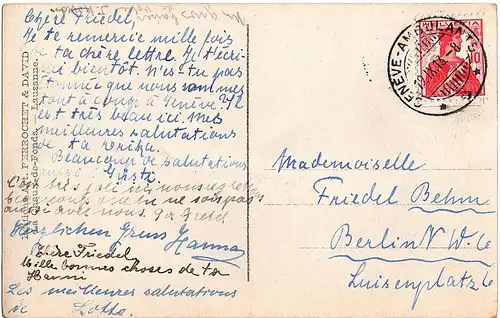 Chère Friedel,
Je te remercie mille fois
de ta chère lettre. Je t'écri-
rai bientôt. N'es-tu pas
étonnée que nous sommes
tout à coup à Genève? C'
est très beau ici. Mes
meilleures salutations
de ta Erika.
Beaucoup de salutations
aussi
L'on très joli ici nous regrettons
beaucoup que tu ne sois pas
aussi avec nous. ta Gretel
Herzlichen Gruss Hanna
Chère Friedel
Mille bonnes choses de ta
Hanni
Les meilleures salutations
de Lotte.
PERROCHET & DAVID
La Chaux-de-Fonds, Lausanne.
GENÈVE-AMBULANTS
HELVETIA
10
Mademoiselle
Friedel Behm
Berlin N W. 6
Luisenplatz 6